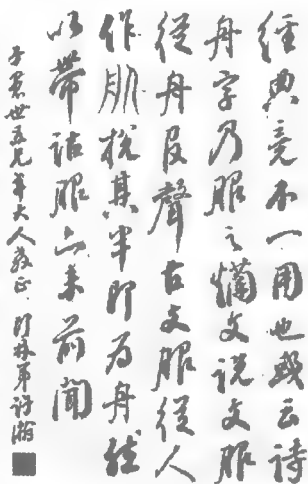 經典竟不一用也或云詩
舟字乃服之爛文說文服
從舟𠬝聲古文服從人
作肌挩其半即為舟然
以帶詁服亦未前聞
子衆世五兄年大人教正 印林弟許瀚